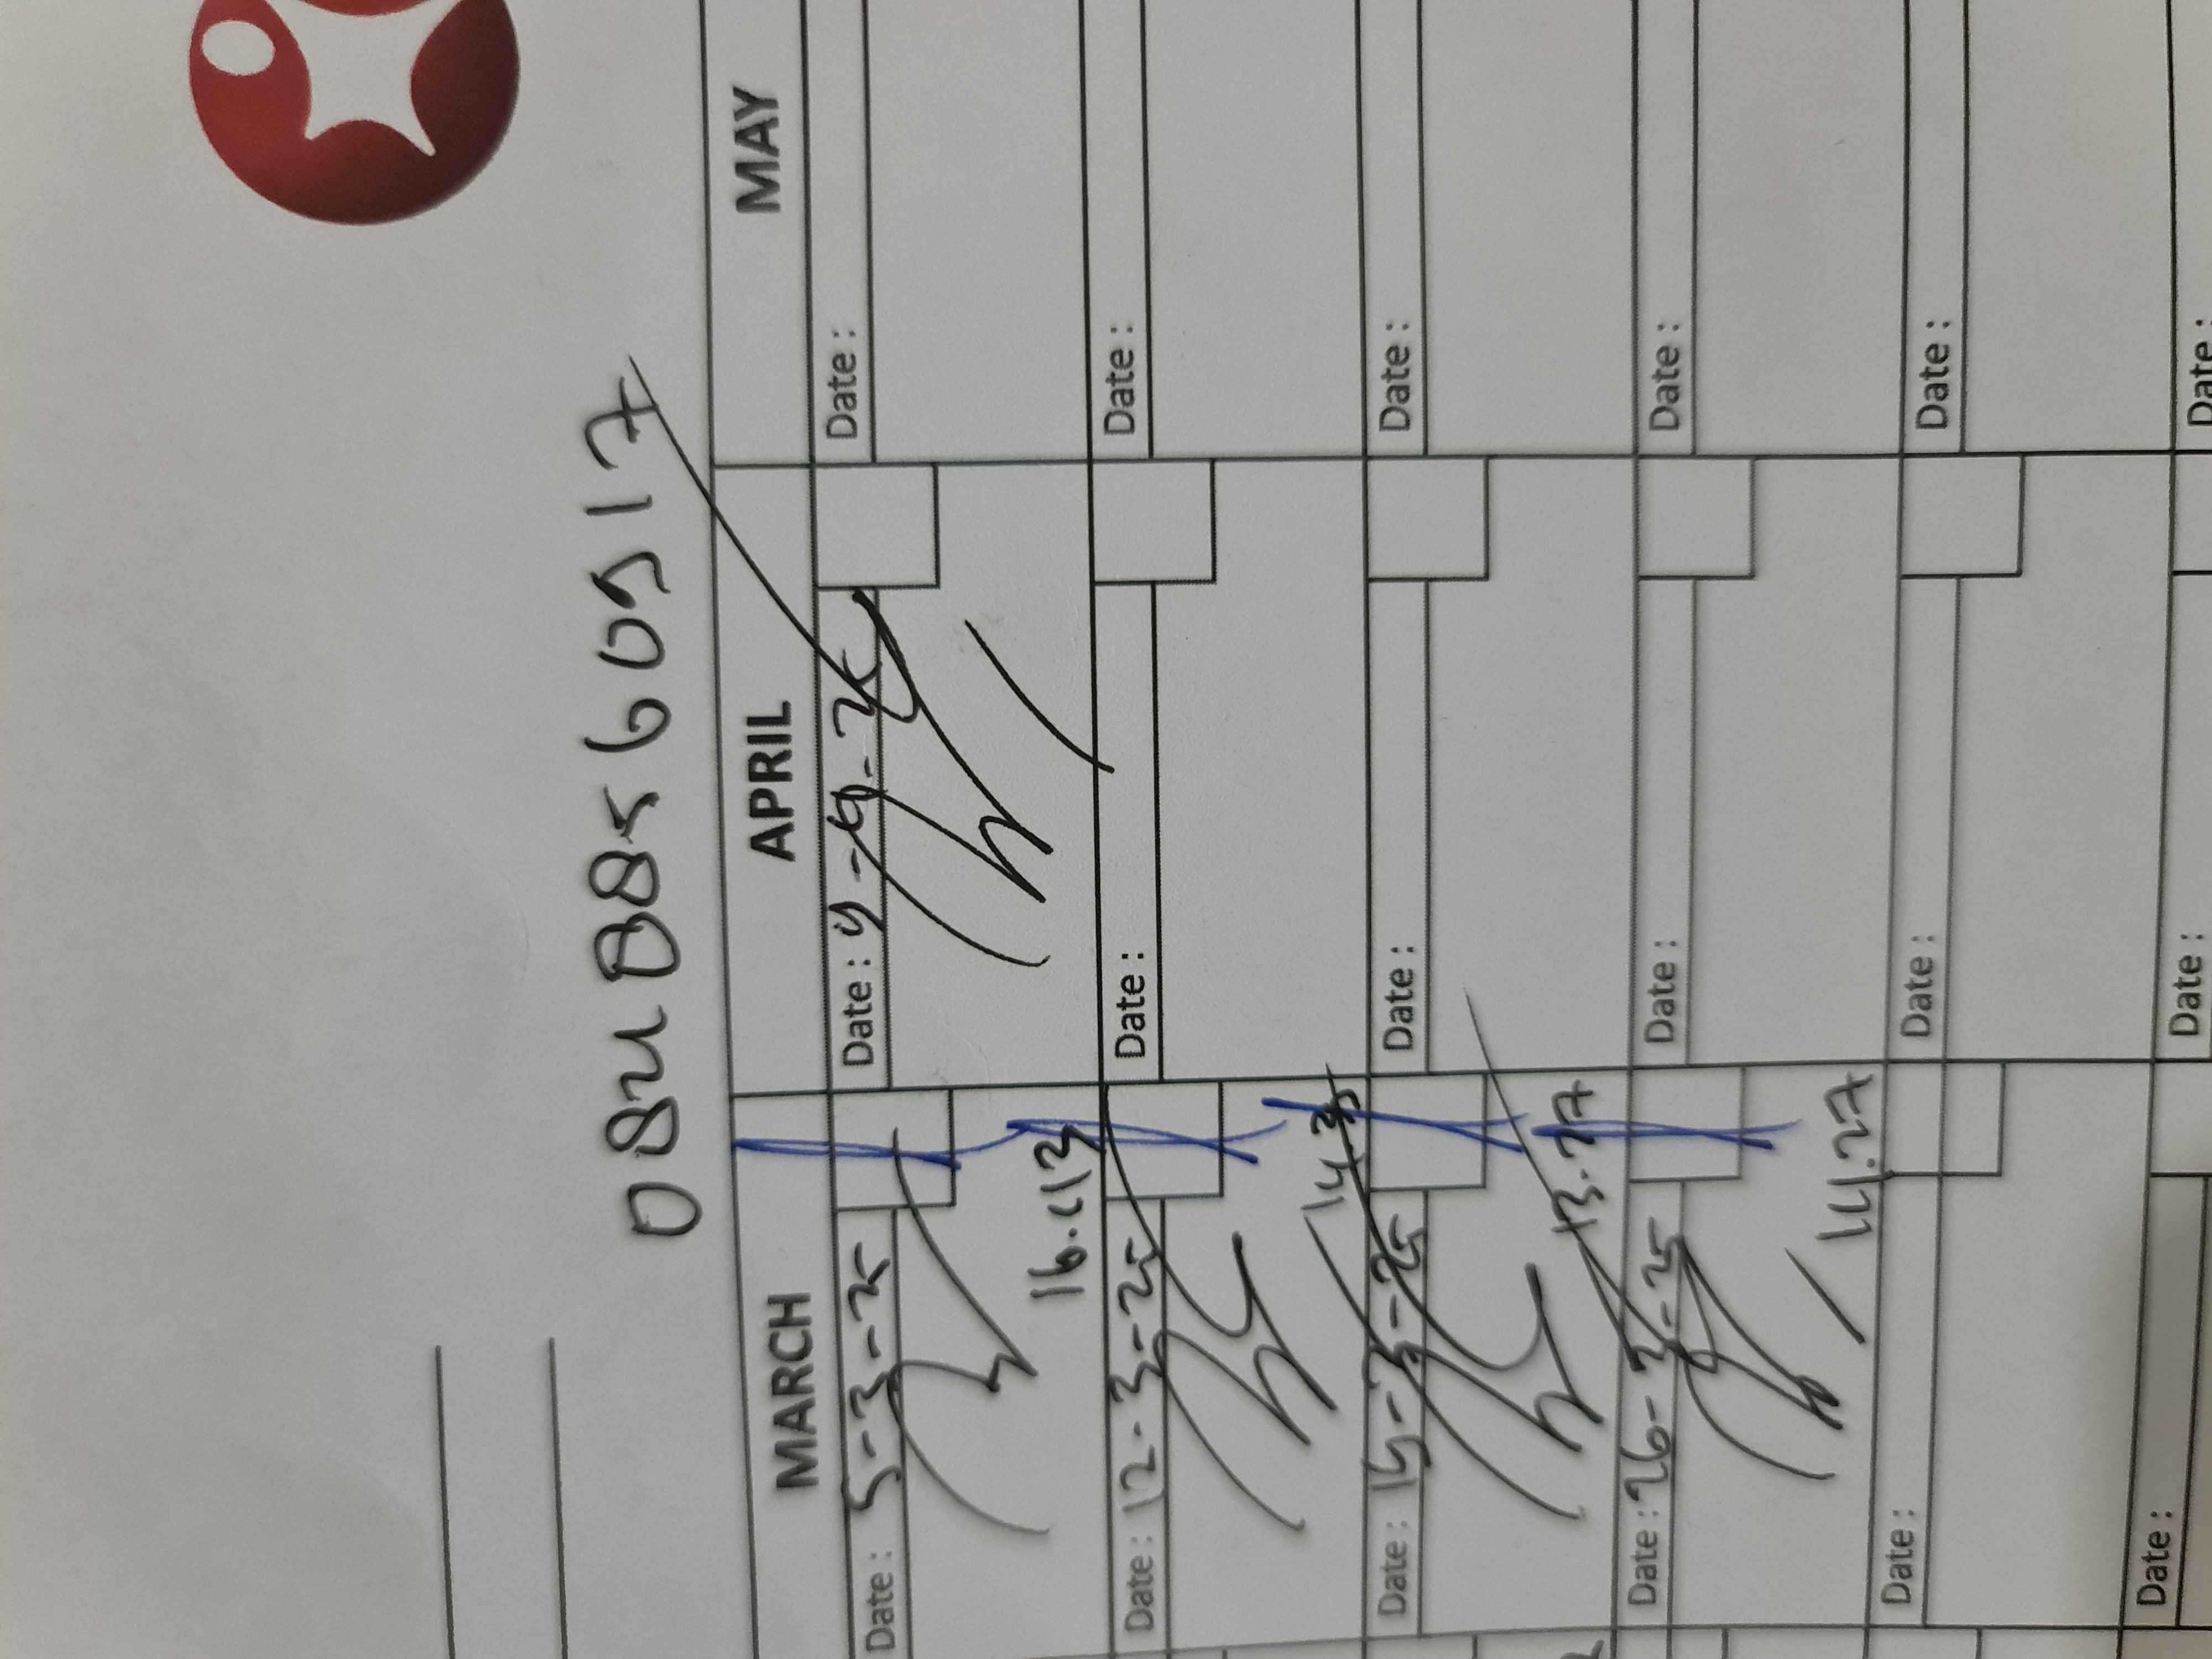 0824885609 17
MARCH APRIL MAY
Date : 5-3-25 Date : 4-4-25 Date :
16.43
Date : 12-3-25 Date : Date :
Date : 19-3-25 Date : Date :
13.27
Date : 26-3-25 Date : Date :
14.27
Date : Date : Date :
Date : Date : Date :